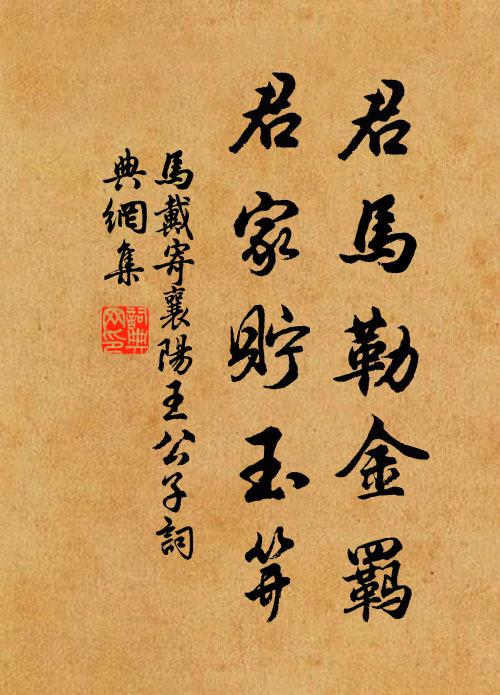 君馬勒金羈
君家貯玉笄
馬戴寄襄陽王公子詞
典網集
詞典網印